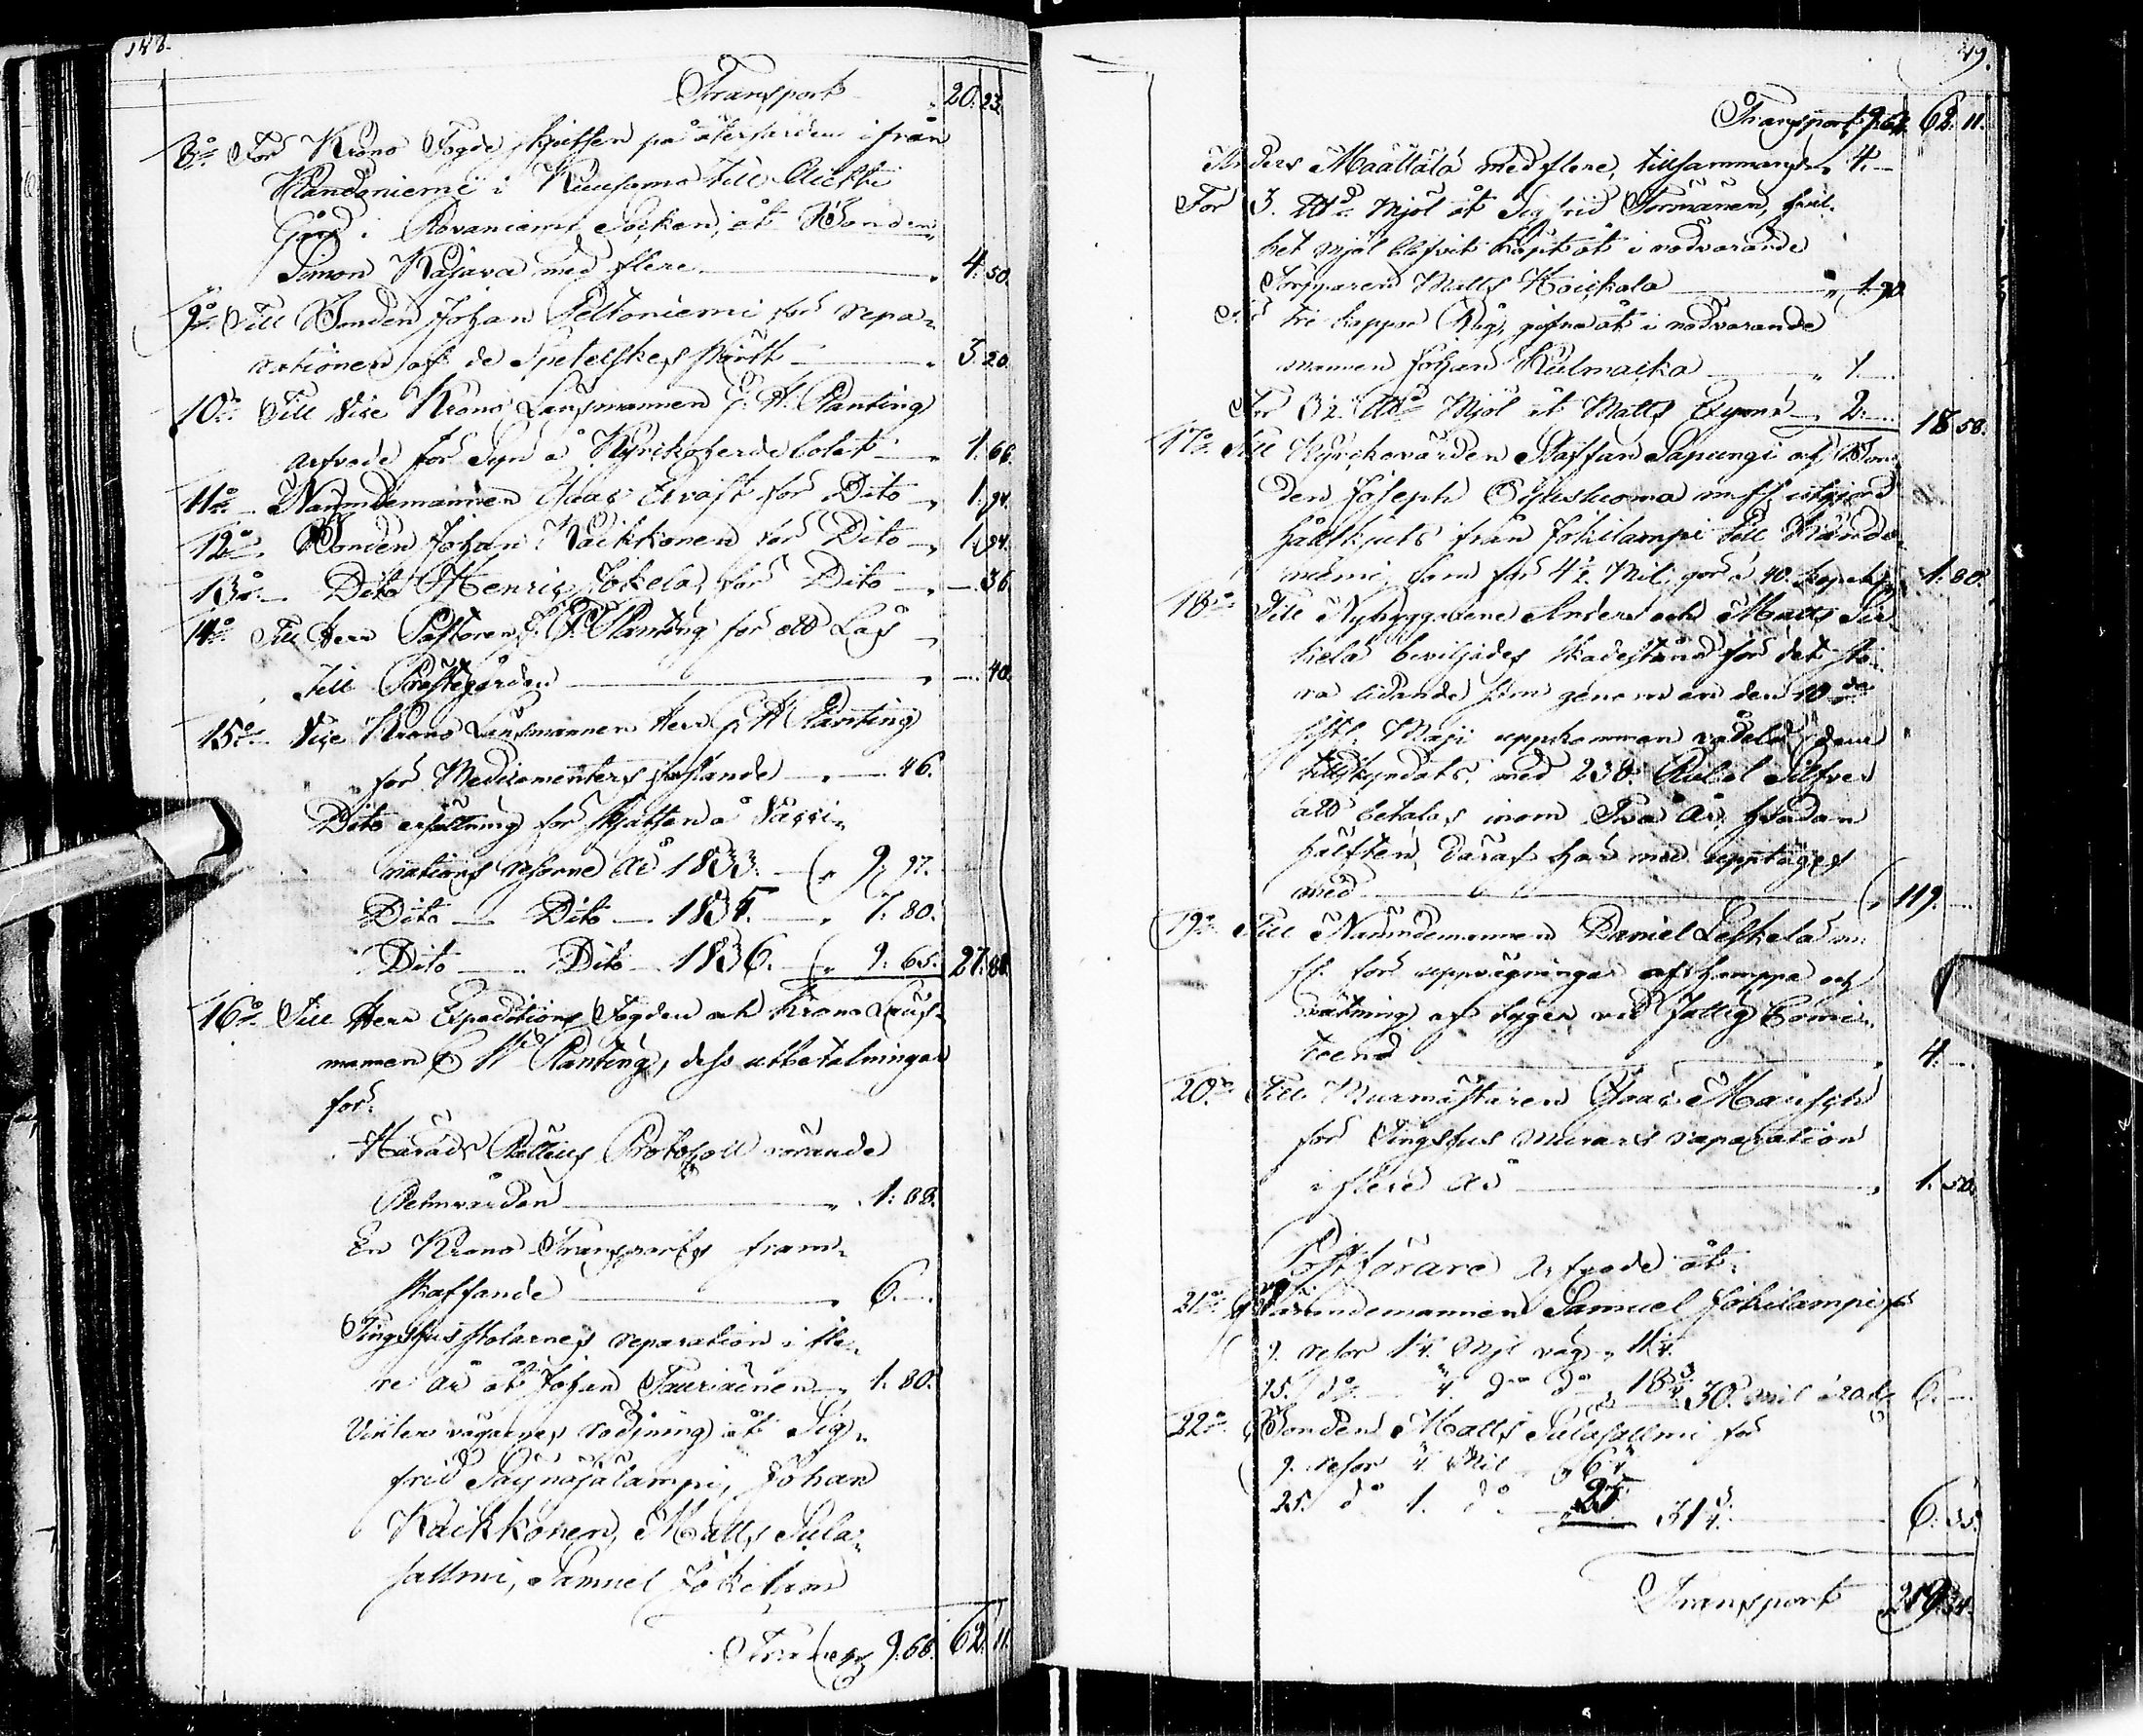 148.
Transport 20. 23.
8:o För Krono Fogde skjutsen på återfärden ifrån
Randoniemi i Kuusamo till
Gård i Rovaniemi Socken, åt Bonden
Simon Kajava med flere 4. 50.
9:o Till Bonden Johan Peltoniemi för repa-
rationen af de Spetelskes Pört 3. 20.
10:o Till Vice Krono Länsmannen G. W. Planting
arfvode för Syn å Kyrkoherde bolet 1. 66.
11:o Nämndemannen Claas Ervast för Dito 1. 94.
12:o Bonden Johan Käikkönen för Dito 1. 94.
13:o Dito Henric Jokela, för Dito 36
14:o Till Herr Pastoren Planting för ett Lås
Till Prästegården 40.
15:o Vice Krono Länsmannen Herr G. W. Planting
för Medicamenters 46.
Dito ersättning för skjutsen å Vacci-
nations resorne År 1833. 9. 97.
Dito Dito 1835. 7. 80.
Dito Dito 1836. 9. 65. 27. 88.
16:o Till Herr Expeditions Fogden och Krono Läns-
mannen G W Planting, dess utbetalningar
för.
Härads Rättens Protokoll rörande
1: 88.
En Krono Transports fram-
skaffande 6.
Tingshus stolarnes reparation i fle-
re år åt Johan Tauriainen 1. 80.
Vinter vägarnes rödjning åt Sig-
frid Saynäjälampi, Johan
Käikkönen, Matts Sula-
sallmi, Samuel Jokilam
9. 68. 62. 11.
49.
Transport 9.68. 62. 11.
Anders Määttälä med flere, tillsammans 4.
För 3. Mjöl åt Sigfrid Törmänen, hvil-
ket mjöl blifvit köpt åt i nödvarande
Torpparen Matts Koiskala 1. 90
För tre kappar Råg, gifne åt i nödvarande
mannen Johan Kulmaka 1.
För 3½ Mjöl åt Matts 2. 18 58.
17:o Till Kyrckovärden Staffan Säpungi och Bon-
den Joseph m. fl. utgjord
hållskjuts från Jokilampi till Rando-
niemi, som för 4½ Mil, gör à 40. kopek 1. 80.
18:o Till Nybyggarne Anders och Matts Sir-
kelä beviljades skadestånd för det sto-
ra lidande som genom en den 10:de
sistl. Maji uppkommen vådeld dem
tillskyndats, med 238. Rubel Silfver
att betalas inom Två År, hvadan
hälften däraf här med upptages
med 119.
19:o Till Nämndemannen Daniel Leskelä m.
fl. för uppvägningar af hamppa och
mätning af tyger vid Fattig Comi-
téend 4.
20:o Till Murmästaren Claas Mansch
för Tingshus murars reparation
i flere år 1. 50.
Postförare Arfvode åt.
21:o Nämndemannen Samuel Jokilampi för
9. resor 1¼ Mil väg 11¼.
25. d:o ¾ d:o d:o 18¾ 30. mil à 20 k 6.
22:o Bonden Matts Sulasallmi för
9. resor ¾ Mil 6¾
25. d:o 1. d:o 25. 31¾ 6. 35.
Transport 219. 34.